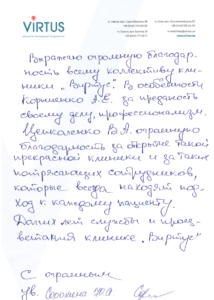 VIRTUS
Выражаю огромную благодар-
ность всему коллективу кли-
ники „Виртус". В особенности
Корниенко А.Е. за преданость
своему делу, профессионализм.
Цепколенко В.А. огромную
благодарность за открытие такой
прекрасной клиники и за таких
потрясающих сотрудников,
которые всегда находят под-
ход к каждому пациенту.
Долгих лет службы и процв-
ветания клинике „Виртус"
С огромным
Ув. Сорокина Ю.А.